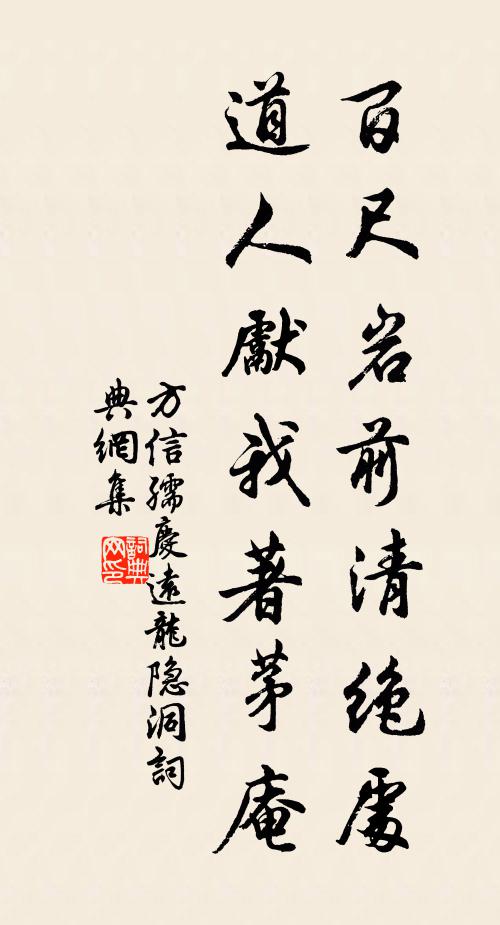 百尺岩前清绝處
道人獻我著茅庵
方信孺慶遠龍隐洞詞
典網集
詞典网印